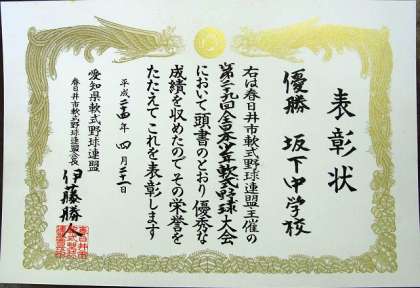 表彰状
優勝 坂下中学校
右は春日井市軟式野球連盟主催の
第二九回全日本少年軟式野球大会
において頭書のとおり優秀な
成績を収めたのでその栄誉を
たたえてこれを表彰します
平成二四年四月二十一日
愛知県軟式野球連盟
春日井市軟式野球連盟会長 伊藤勝人